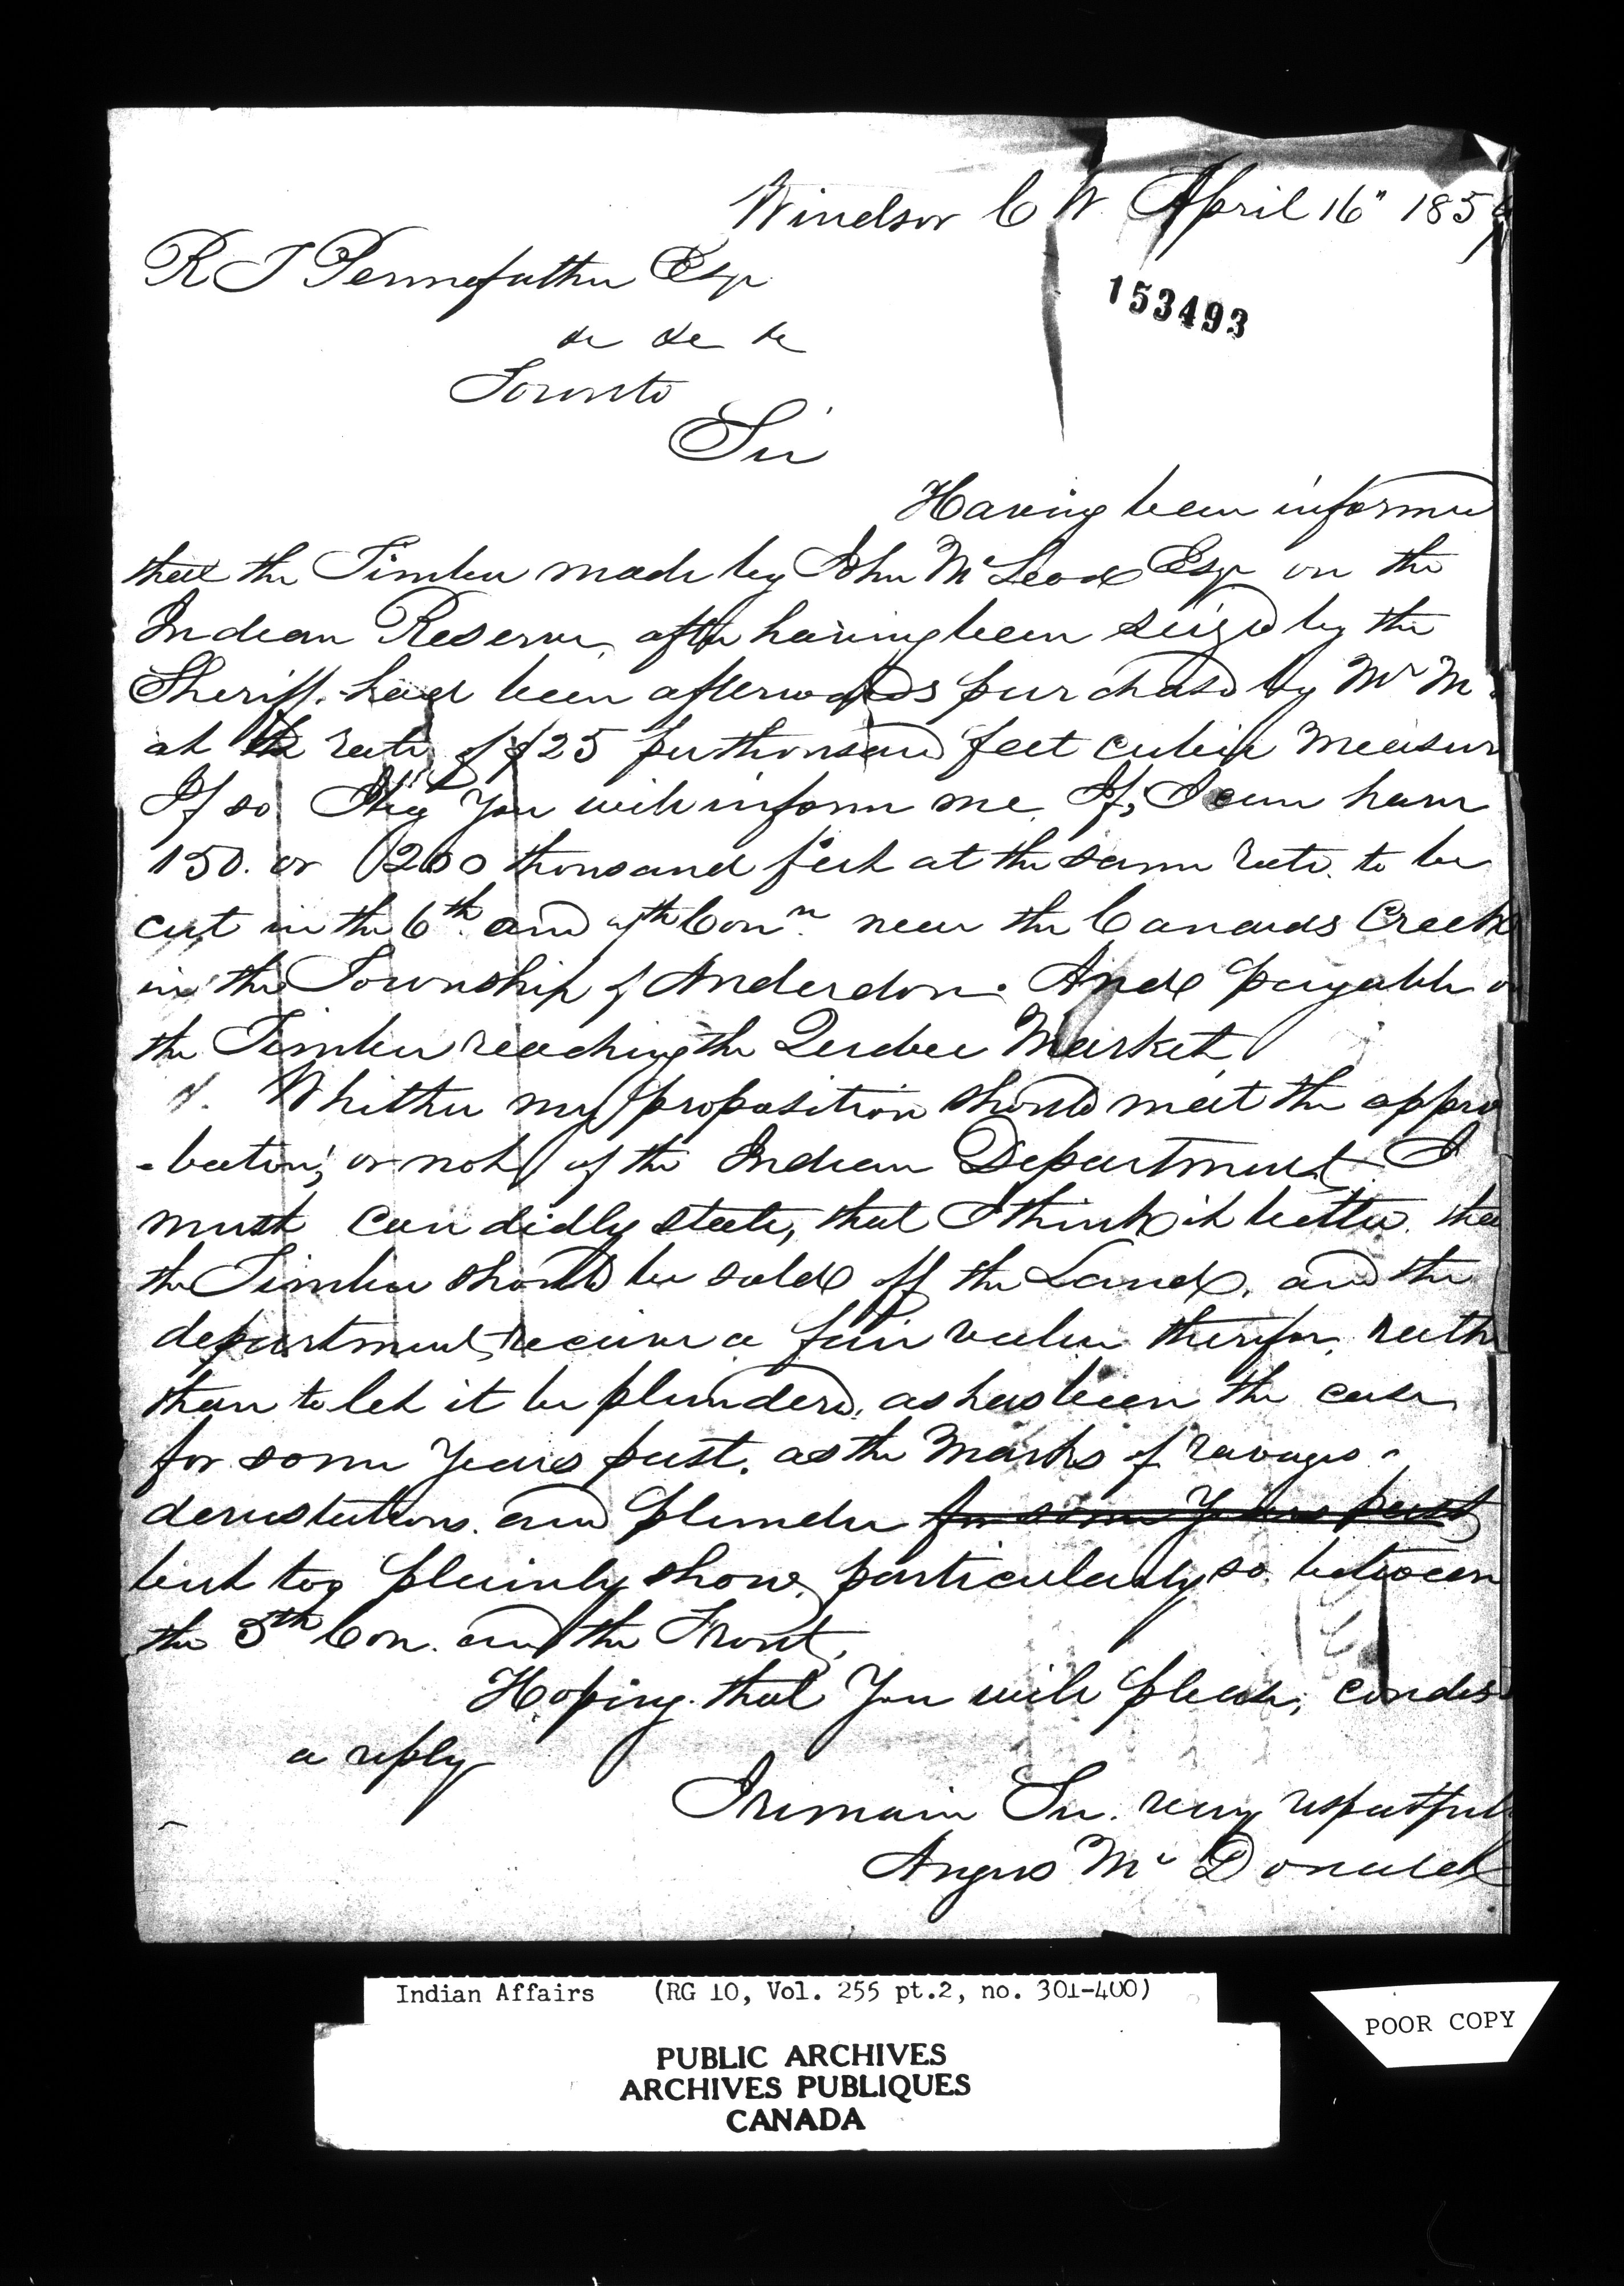 Windsor C W. April 16" 185
R T Pennefather Esqr
&c &c &c
Toronto
Sir
Having been informed
that the Timber made by John McLeod Esqr on the
Indian Reserve, after having been seized by the
Sheriff. had been afterwards purchased by Mr Mc
at the rate of $25 per thousand feet cubic measure
If so I beg You will inform me. If, I can have
150. or 200 thousand feet at the same rate. to be
cut in the 6th. and 7th Conn. near the Canards Creek
in the Township of Anderdon. And payable on
the Timber reaching the Quebec Market.
Whither my proposition should meet the appro
-bation, or not of the Indian Department. I
must candidly state, that I think it better. that
the Timber should be sold off the Land. and the
department, receive a fair value therefor, rather
than to let it be plundered, as has been the case
for some Years past. as the marks of ravages -
devastations. and plunder for some Years past
but too plainly show, particularly so between
the 5th Con. and the Front,
Hoping that You will please, condes
a reply
I remain Sir. very respectfully
Angus Mc Donald
153493
Indian Affairs (RG 10, Vol. 255 pt.2, no. 301-400)
PUBLIC ARCHIVES
ARCHIVES PUBLIQUES
CANADA
POOR COPY